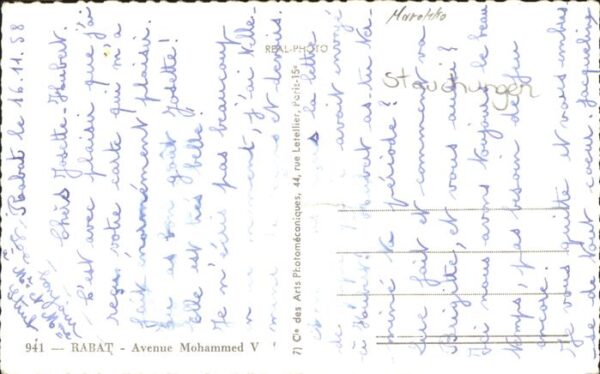 Rabat le 16.11.58
Chers Josette-Hubert
C'est avec plaisir que j'ai
reçu votre carte qui m'a
fait énormément plaisir.
Tu as bon goût Josette!
elle est très belle!
Je n'écris pas beaucoup
moment, j'ai telle-
et devoirs.
la lettre
avait envoyé
Hubert as-tu ter-
miné ta période?
Que fait et comment va
Brigitte, et vous aussi?
Ici nous avons toujours le beau
temps, pas besoin de feu
encore.
Je vous quitte et vous embras-
se de tout cœur. Jacqueline
Marokko
REAL-PHOTO
Stauchungen
Cie des Arts Photomécaniques, 44, rue Letellier, Paris-15e
941 — RABAT - Avenue Mohammed V